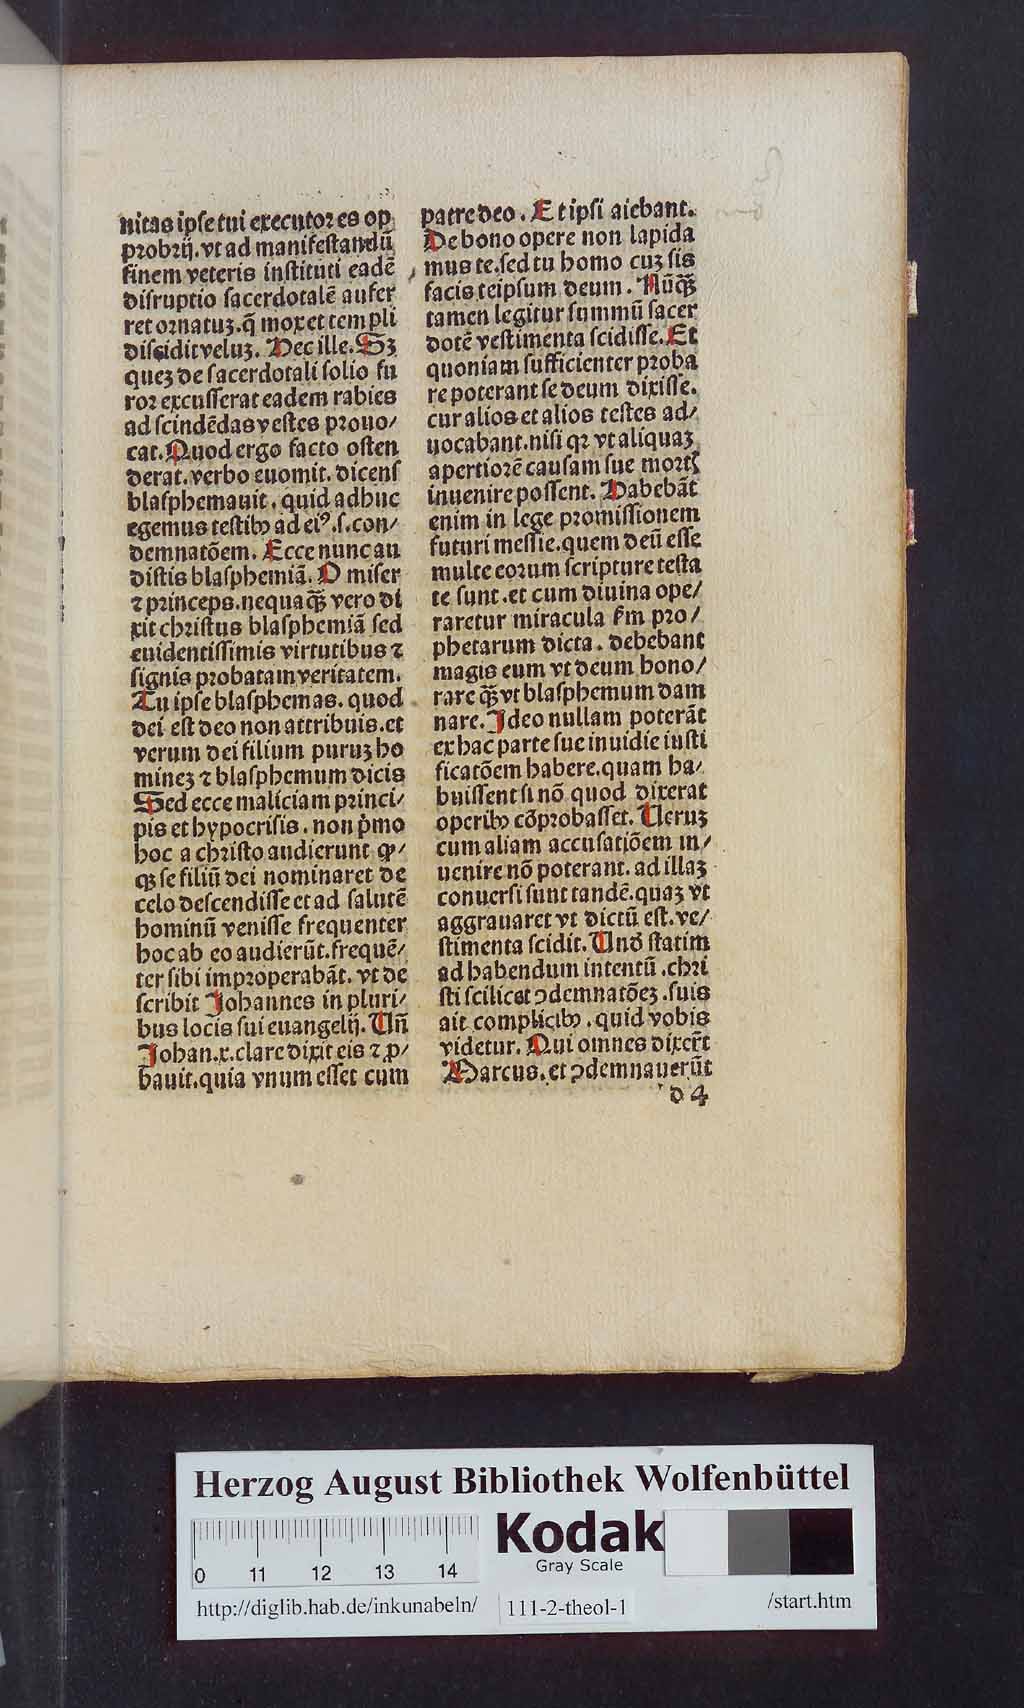 nitas ipſe tui executoꝛes op
pꝛobꝛij. vt ad manifeſtandū
finem veteris inſtituti eadē
diſruptio ſacerdotalē aufer
ret oꝛnatuꝫ. q̄ mox et templi
diſcidit veluꝫ. Hec ille. Sꝫ
queꝫ de ſacerdotali ſolio fu
roꝛ excuſſerat eadem rabies
ad ſcindēdas veſtes pꝛouo/
cat. Quod ergo facto oſten
derat. verbo euomit. dicenſ
blaſphemauit. quid adhuc
egemus teſtibꝰ ad eiꝰ.ſ.con/
demnatōem. Ecce nunc au
diſtis blaſphemiā. O miſer
⁊ pꝛinceps. nequaqꝫ̄ vero di
xit chꝛiſtus blaſphemiā ſed
euidentiſſimis virtutibus ⁊
ſignis probatam veritatem.
Tu ipſe blaſphemas. quod
dei eſt deo non attribuis. et
verum dei filium puruꝫ ho
mineꝫ ⁊ blaſphemum dicis
Sed ecce maliciam pꝛinci/
pis et hypocriſis. non pͥmo
hoc a chꝛiſto audierunt qꝙ/
qꝫ ſe filiū dei nominaret de
celo deſcendiſſe et ad ſalutē
hominū veniſſe frequenter
hoc ab eo audierūt. frequē/
ter ſibi impꝛoperabāt. vt de
ſcribit Johannes in pluri/
bus locis ſui euangelij. Uñ
Johan.x. clare dixit eis ⁊ ꝓ/
bauit. quia vnum eſſet cum
patre deo. Et ipſi aiebant.
De bono opere non lapida
mus te. ſed tu homo cuꝫ ſis
facis teipſum deum. Nūqꝫ̄
tamen legitur ſummū ſacer
dotē veſtimenta ſcidiſſe. Et
quoniam ſufficienter pꝛoba
re poterant ſe deum dixiſſe.
cur alios et alios teſtes ad/
uocabant. niſi qꝛ vt aliquaꝫ
apertioꝛē cauſam ſue moꝛtꝭ
inuenire poſſent. Habebāt
enim in lege pꝛomiſſionem
futuri meſſie. quem deū eſſe
multe eoꝛum ſcripture teſta
te ſunt. et cum diuina ope/
raretur miracula ẜm pꝛo/
phetarum dicta. debebant
magis eum vt deum hono/
rare qꝫ̄ vt blaſphemum dam
nare. Ideo nullam poterāt
ex hac parte ſue inuidie iuſti
ficatōem habere. quam ha/
buiſſent ſi nō quod dixerat
operibꝰ cōpꝛobaſſet. Ueruꝫ
cum aliam accuſatiōem in/
uenire nō poterant. ad illaꝫ
conuerſi ſunt tandē. quaꝫ vt
aggrauaret vt dictū eſt. ve/
ſtimenta ſcidit. Unđ ſtatim
ad habendum intentū. chꝛi
ſti ſcilicet ꝯdemnatōeꝫ. ſuis
ait complicibꝰ. quid vobis
videtur. Qui omnes dixer̄t
Marcus. et ꝯdemnauerūt
d 4
Herzog August Bibliothek Wolfenbüttel
Kodak
Gray Scale
0 11 12 13 14
http://diglib.hab.de/inkunabeln/ 111-2-theol-1 /start.htm